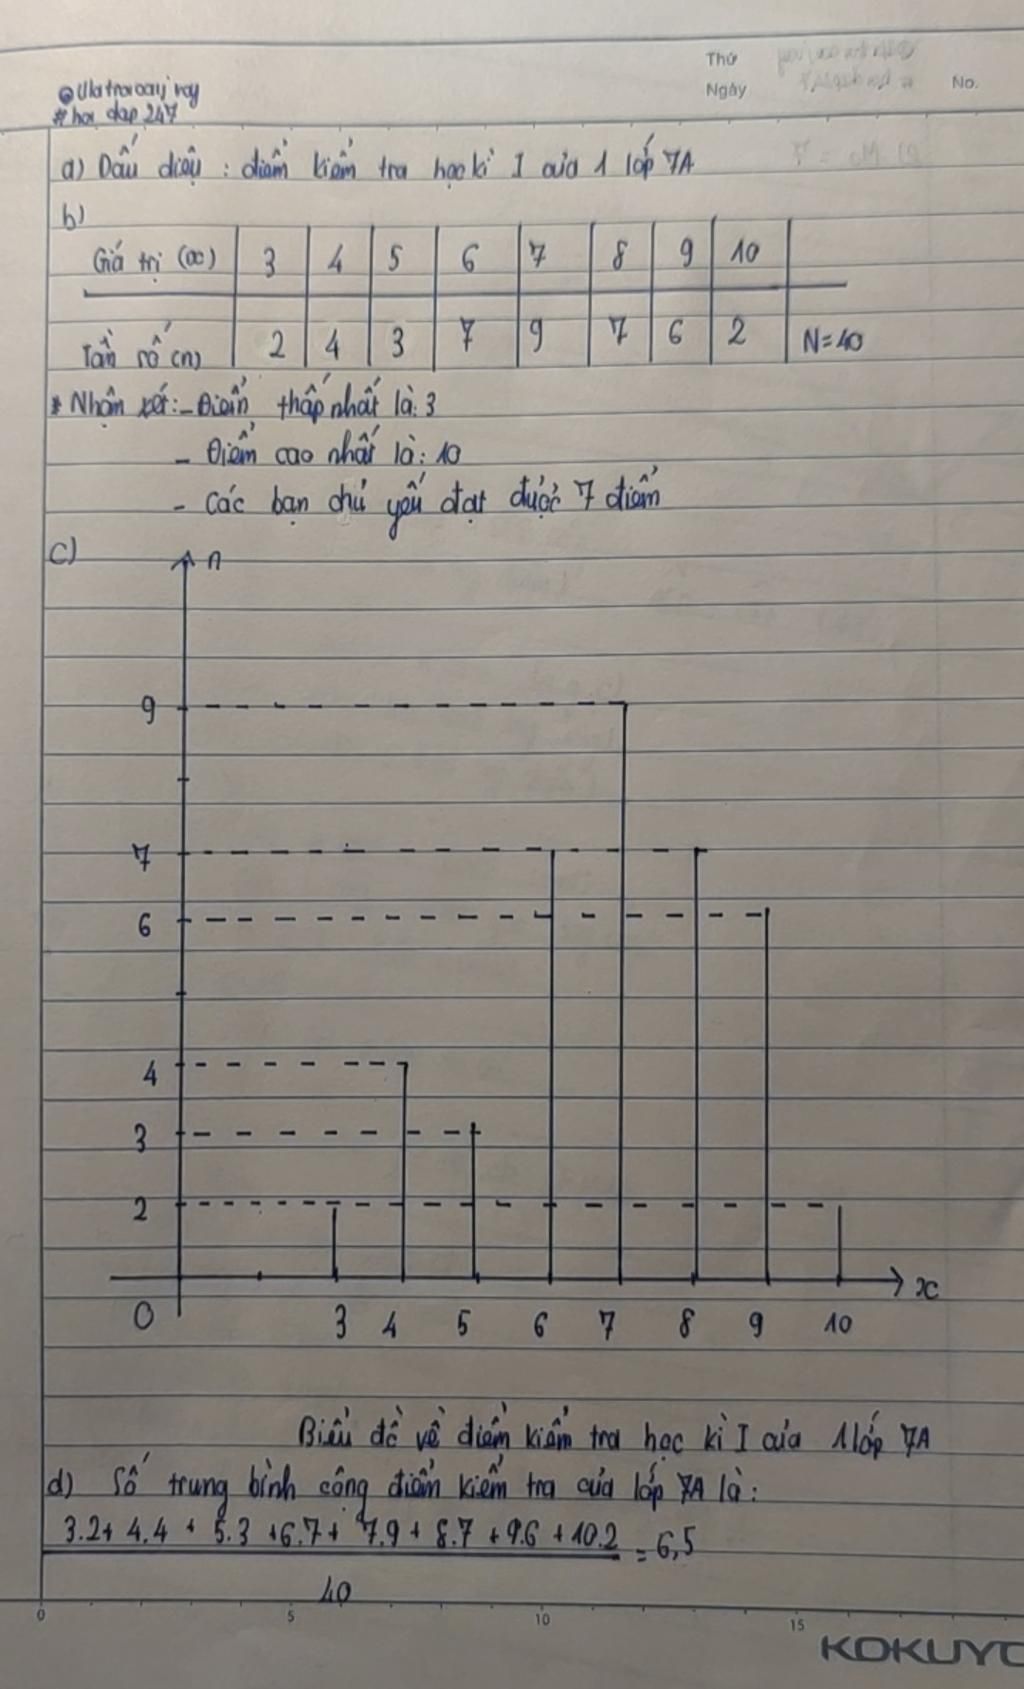 Thứ
Ngày
No.
#hoi dap 247
a) Dấu diệu : điểm kiểm tra học kì I của 1 lớp 7A
b)
Giá trị (x) 3 4 5 6 7 8 9 10
Tần số (n) 2 4 3 7 9 7 6 2 N=40
* Nhận xét: - Điểm thấp nhất là: 3
- Điểm cao nhất là: 10
- Các bạn chủ yếu đạt được 7 điểm
c)
n
9
7
6
4
3
2
0 3 4 5 6 7 8 9 10 x
Biểu đồ về điểm kiểm tra học kì I của 1 lớp 7A
d) Số trung bình cộng điểm kiểm tra của lớp 7A là:
3.2+ 4.4 + 5.3 +6.7+ 7.9 + 8.7 +9.6 +10.2 = 6,5
40
0 5 10 15
KOKUYO